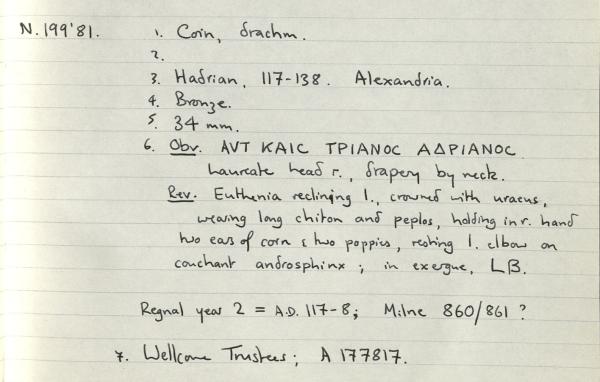 N. 199'81. 1. Coin, drachm.
2.
3. Hadrian, 117-138. Alexandria.
4. Bronze.
5. 34 mm.
6. Obv. ΑΥΤ ΚΑΙC ΤΡΙΑΝΟC ΑΔΡΙΑΝΟC
Laureate head r., drapery by neck.
Rev. Euthenia reclining l., crowned with uraeus,
wearing long chiton and peplos, holding in r. hand
two ears of corn & two poppies, resting l. elbow on
couchant androsphinx; in exergue, LB.
Regnal year 2 = A.D. 117-8; Milne 860/861 ?
7. Wellcome Trustees; A 177817.